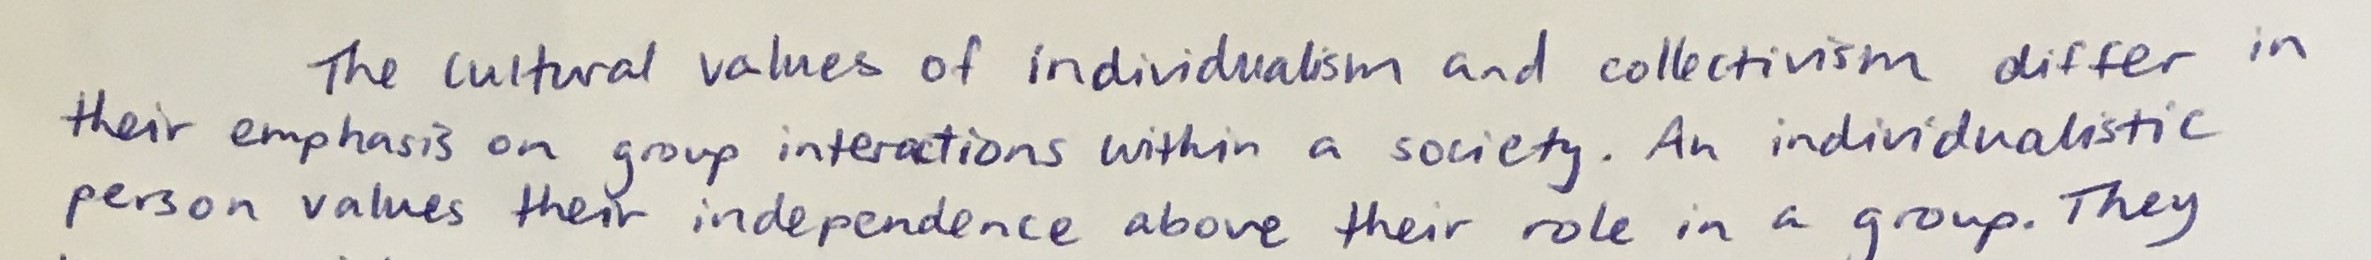 The cultural values of individualism and collectivism differ in
their emphasis on group interactions within a society. An individualistic
person values their independence above their role in a group. They